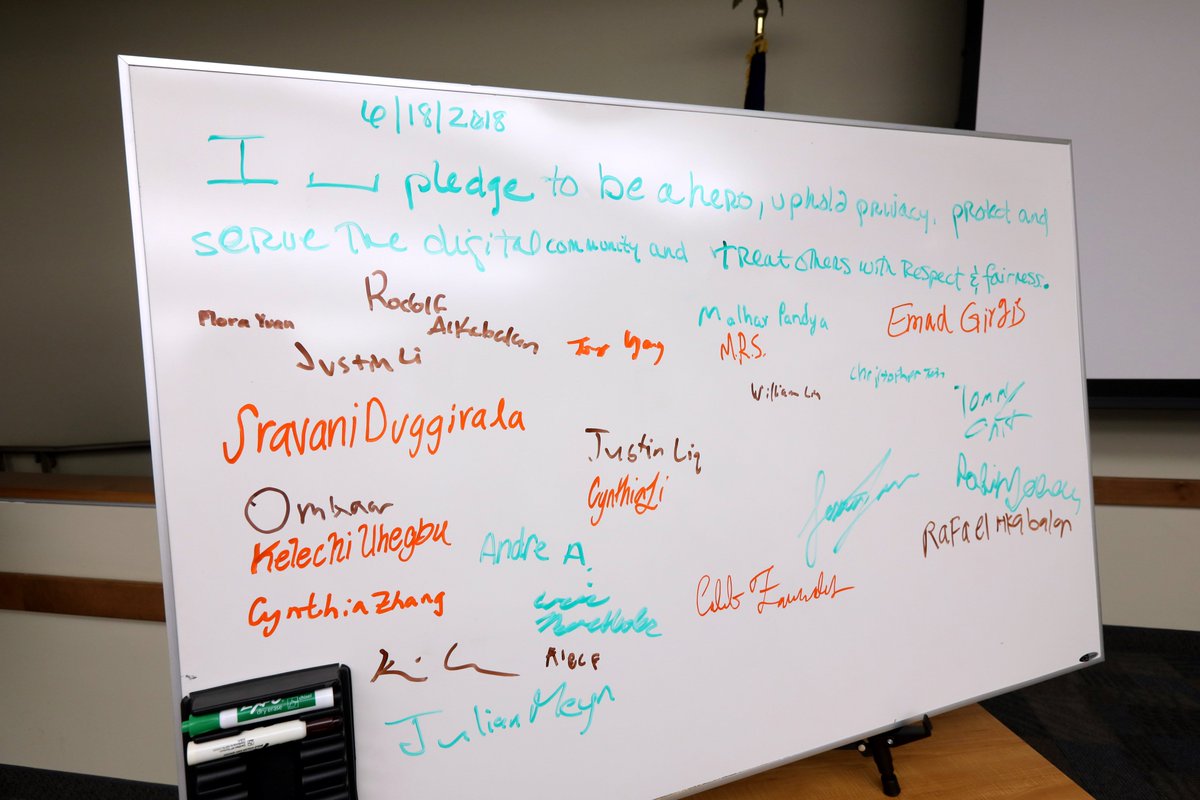 6/18/2018
I ___ pledge to be a hero, uphold privacy, protect and
serve the digital community and treat others with Respect & fairness.
Rodolf
Alkabalan
Flora Yuen
Justin Li
Yang
Malhar Pandya
M.R.S.
Emad Girgis
William Lin
Christopher
Tommy
Sravani Duggirala
Justin Liq
Cynthia Li
Omkaar
Kelechi Uhegbu
Andre A.
Rafael Alkabalan
Cynthia Zhang
Caleb
Alec F
Julian Meyn
dry erase